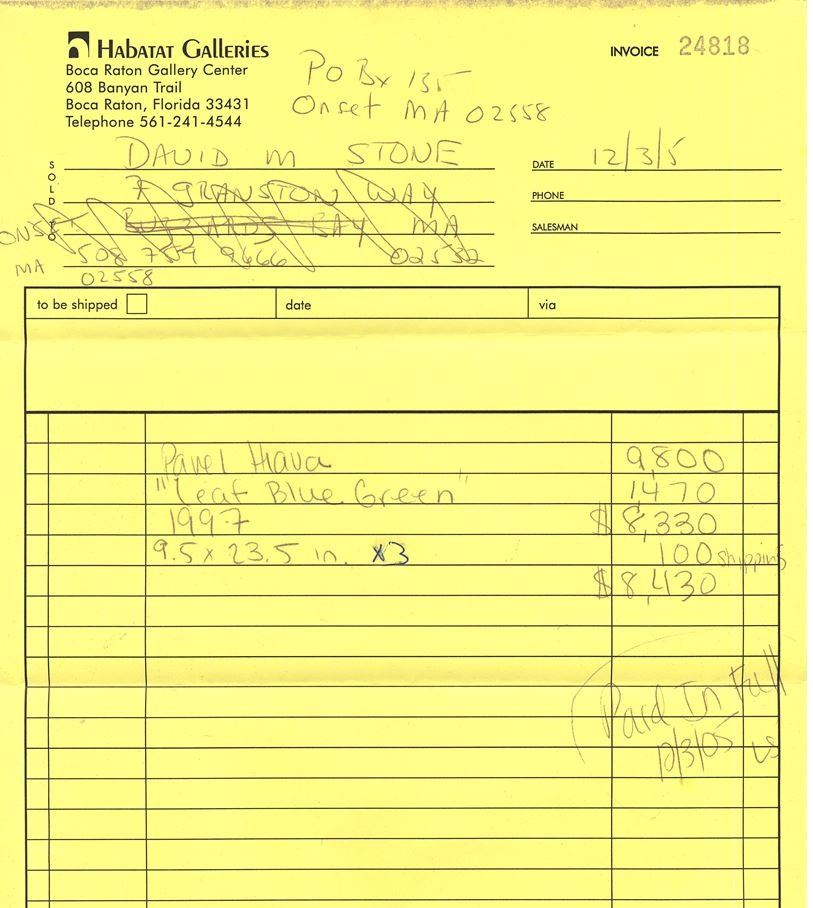 Habatat Galleries
Boca Raton Gallery Center
608 Banyan Trail
Boca Raton, Florida 33431
Telephone 561-241-4544
PO Bx 135
Onset MA 02558
INVOICE 24818
SOLD TO
DAVID M STONE
7 GRANSTON WAY
BUZZARDS BAY MA
ONSET
508 759 9666 02532
MA
02558
DATE 12/3/5
PHONE
SALESMAN
to be shipped date via
Pavel Hlava 9,800
"Leaf Blue Green" 1470
1997 $8,330
9.5 x 23.5 in. x3 100 shipping
$8,430
Paid In Full
12/3/05 LS